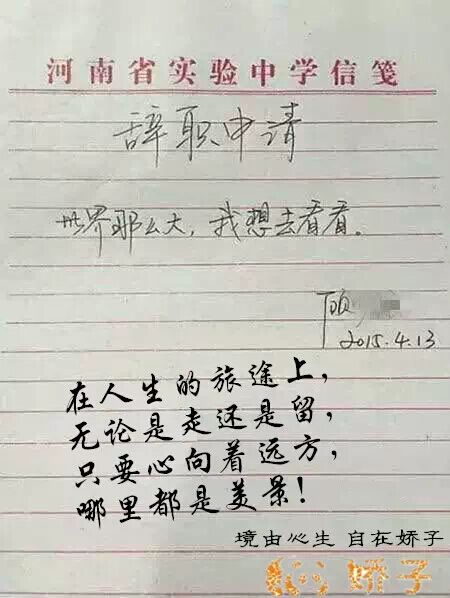 河南省实验中学信笺
辞职申请
世界那么大，我想去看看。
顾
2015.4.13
在人生的旅途上，
无论是走还是留，
只要心向着远方，
哪里都是美景！
境由心生 自在娇子
娇子